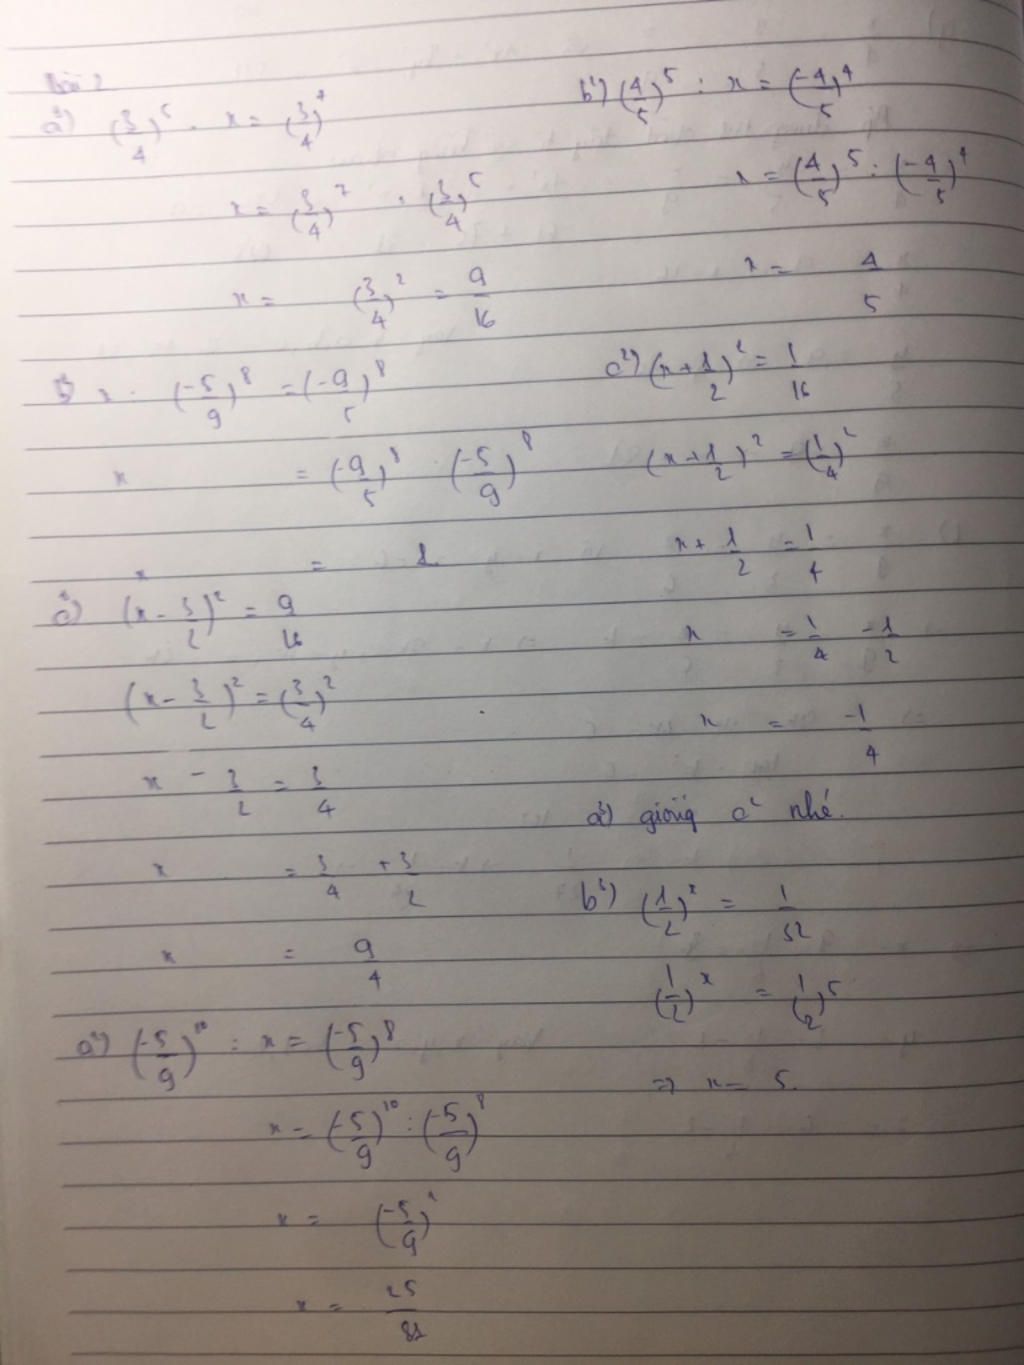 Bài 2
a¹) (3/4)^5 . x = (3/4)^7
x = (3/4)^7 : (3/4)^5
x = (3/4)^2 = 9/16
b¹) x : (-5/9)^8 = (-9/5)^8
x = (-9/5)^8 . (-5/9)^8
x = 1
c¹) (x - 3/2)^2 = 9/16
(x - 3/2)^2 = (3/4)^2
x - 3/2 = 3/4
x = 3/4 + 3/2
x = 9/4
a²) (-5/9)^10 : x = (-5/9)^8
x = (-5/9)^10 : (-5/9)^8
x = (-5/9)^2
x = 25/81
b²) (4/5)^5 : x = (-4/5)^4
x = (4/5)^5 : (-4/5)^4
x = 4/5
c²) (x + 1/2)^2 = 1/16
(x + 1/2)^2 = (1/4)^2
x + 1/2 = 1/4
x = 1/4 - 1/2
x = -1/4
a³) giống c² nhé.
b³) (1/2)^x = 1/32
(1/2)^x = (1/2)^5
=> x = 5.